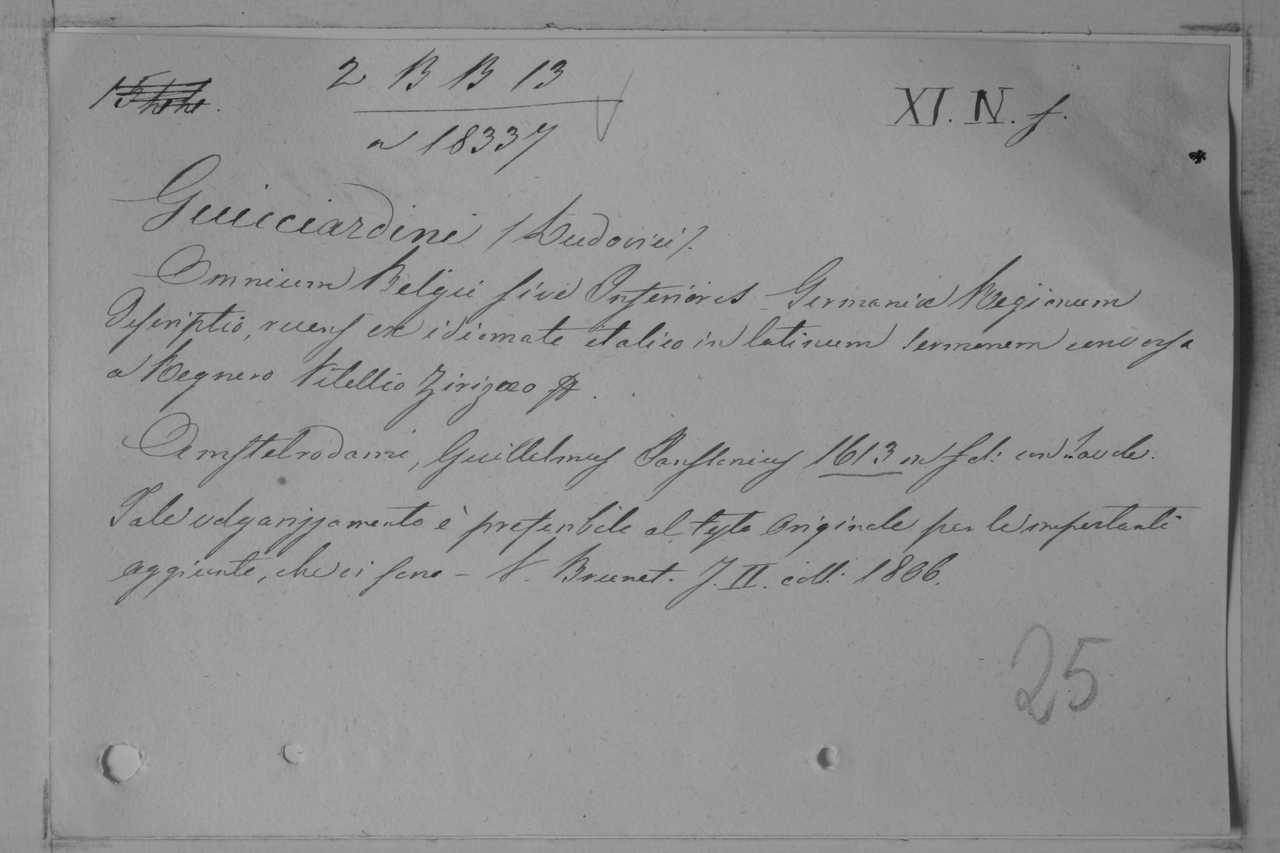 2 B B 13
XI. N. f.
a 18337
Guicciardini (Ludovici).
Omnium Belgii sive Inferioris Germaniæ Regionum
Descriptio, recens ex idiomate italico in latinum sermonem conversa
a Regnero Vitellio Zirizæo &.
Amstelrodami, Guillelmus Janssonius 1613 in fol: con Tavole.
Tale volgarizzamento è preferibile al testo originale per le importanti
aggiunte, che ci sono – V. Brunet. T. II. coll. 1806.
25